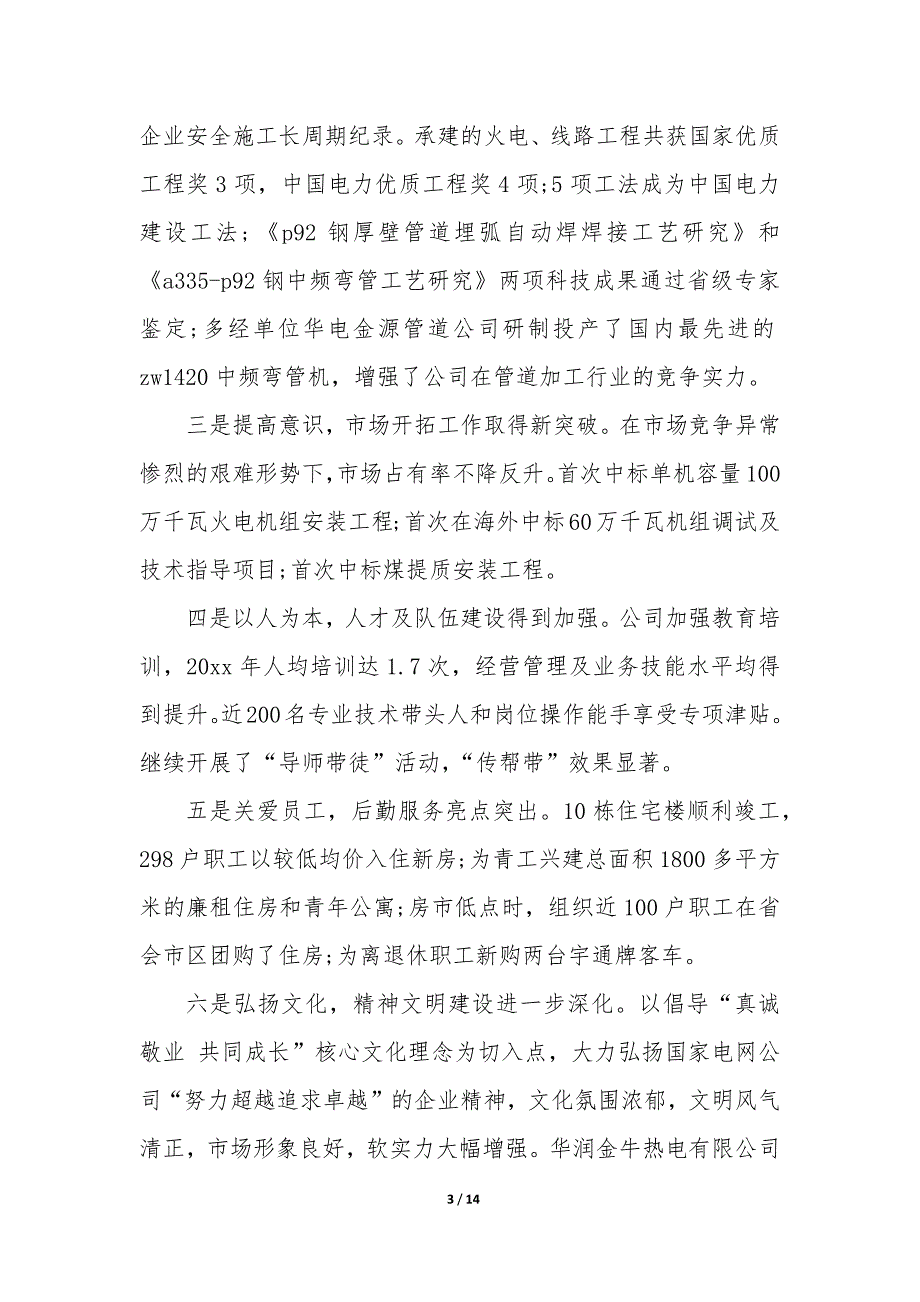 企业安全施工长周期纪录。承建的火电、线路工程共获国家优质
工程奖3项，中国电力优质工程奖4项;5项工法成为中国电力
建设工法;《p92钢厚壁管道埋弧自动焊焊接工艺研究》和
《a335-p92钢中频弯管工艺研究》两项科技成果通过省级专家
鉴定;多经单位华电金源管道公司研制投产了国内最先进的
zw1420中频弯管机，增强了公司在管道加工行业的竞争实力。
三是提高意识，市场开拓工作取得新突破。在市场竞争异常
惨烈的艰难形势下，市场占有率不降反升。首次中标单机容量100
万千瓦火电机组安装工程;首次在海外中标60万千瓦机组调试及
技术指导项目;首次中标煤提质安装工程。
四是以人为本，人才及队伍建设得到加强。公司加强教育培
训，20xx年人均培训达1.7次，经营管理及业务技能水平均得
到提升。近200名专业技术带头人和岗位操作能手享受专项津贴。
继续开展了“导师带徒”活动，“传帮带”效果显著。
五是关爱员工，后勤服务亮点突出。10栋住宅楼顺利竣工，
298户职工以较低均价入住新房;为青工兴建总面积1800多平方
米的廉租住房和青年公寓;房市低点时，组织近100户职工在省
会市区团购了住房;为离退休职工新购两台宇通牌客车。
六是弘扬文化，精神文明建设进一步深化。以倡导“真诚
敬业 共同成长”核心文化理念为切入点，大力弘扬国家电网公
司“努力超越追求卓越”的企业精神，文化氛围浓郁，文明风气
清正，市场形象良好，软实力大幅增强。华润金牛热电有限公司
3 / 14